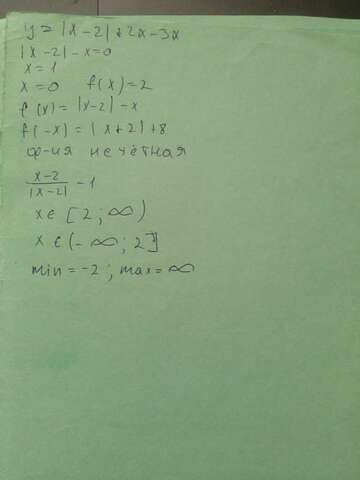 y = |x-2|+2x-3x
|x-2|-x=0
x=1
x=0 f(x)=2
f(x)=|x-2|-x
f(-x)=|x+2|+8
ф-ия нечётная
x-2
|x-2| -1
x∈[2;∞)
x∈(-∞;2]
min=-2; max=∞